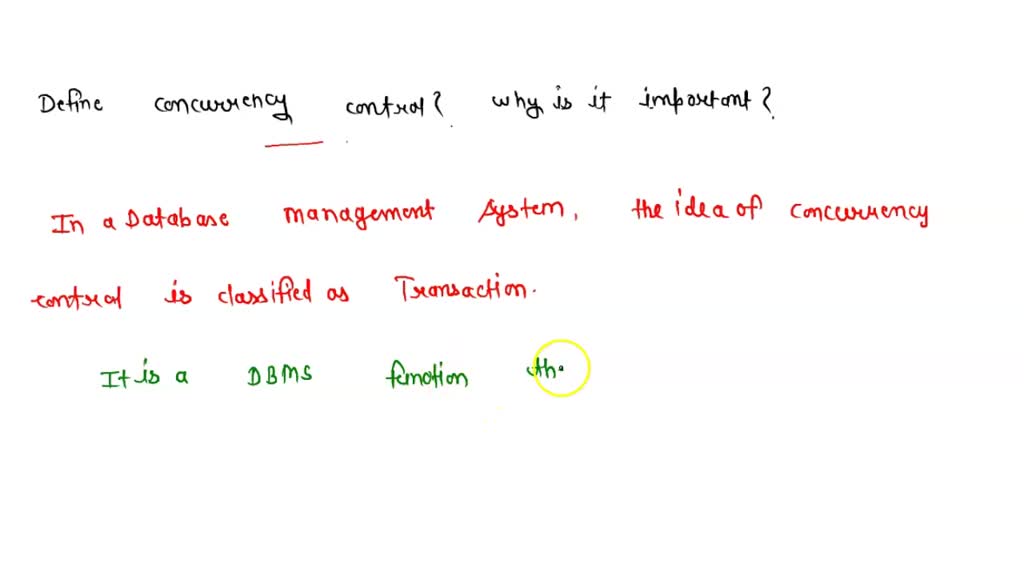 Define concurrency control? why is it important?
In a Database management System, the idea of concurrency
control is classified as Transaction.
It is a DBMS function th